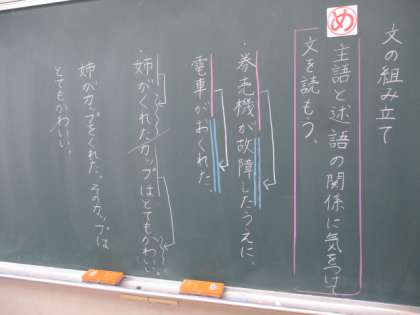 文の組み立て
め
主語と述語の関係に気をつけ
文を読もう。
・券売機が故障したうえに、
電車がおくれた。
・姉がくれたカップはとてもかわいい。
姉がカップをくれた。そのカップは
とてもかわいい。